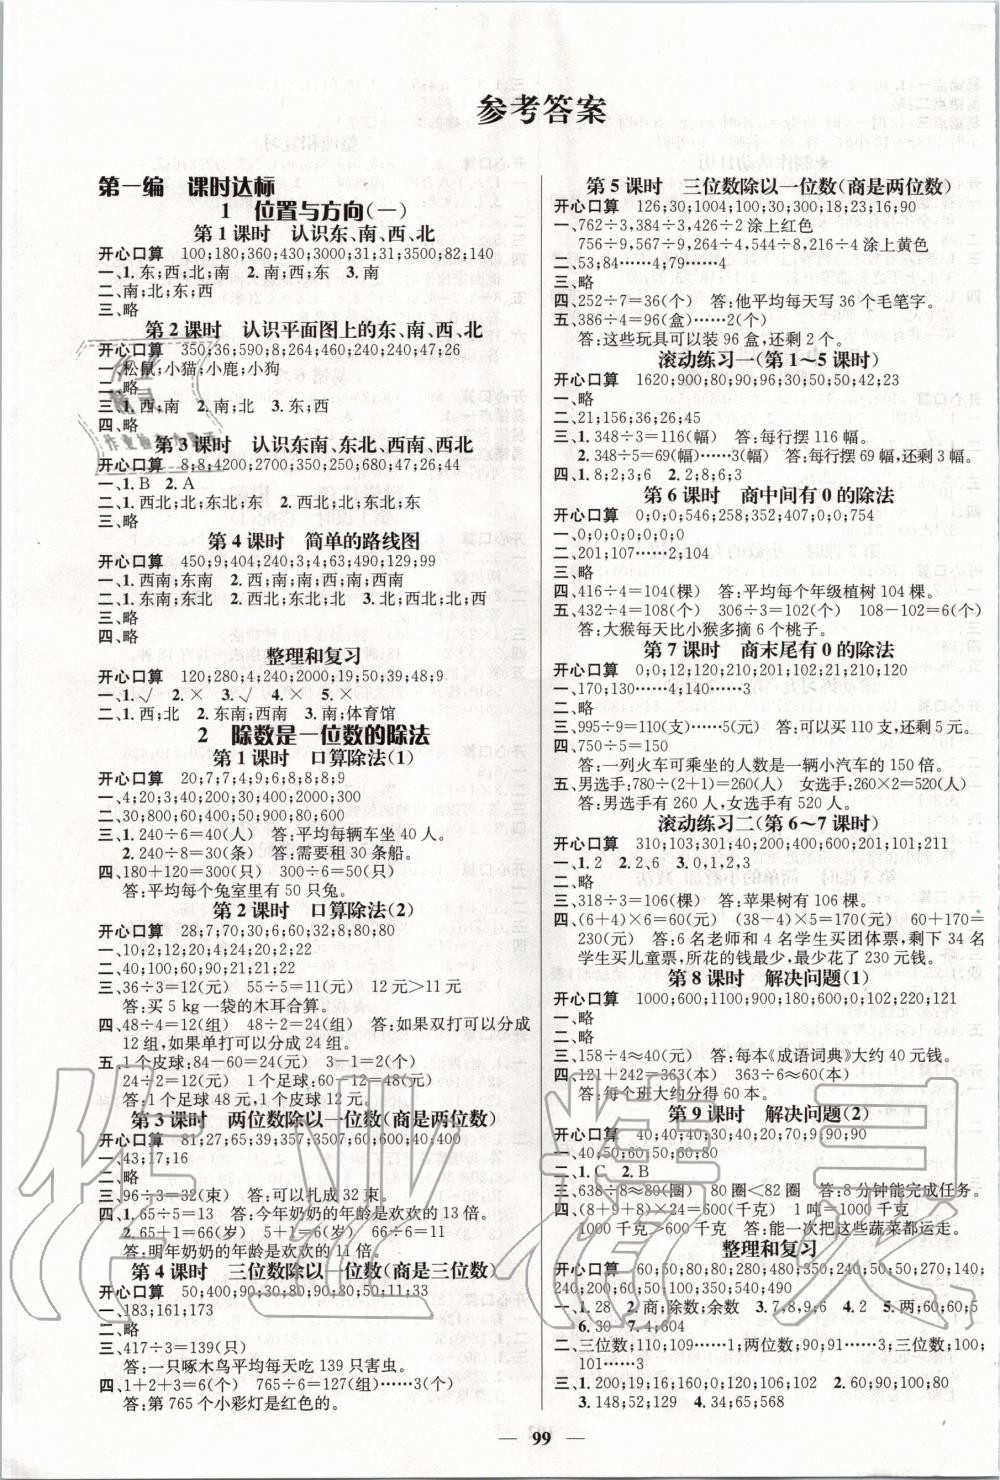 参考答案
第一编　课时达标
1　位置与方向(一)
第1课时　认识东、南、西、北
开心口算　100;180;360;430;3000;31;31;3500;82;140
一、1.东;西;北;南　2.南;西;东　3.南
二、南;北;东;西
三、略
第2课时　认识平面图上的东、南、西、北
开心口算　350;36;590;8;264;460;240;470;47;26
一、松鼠;小猫;小鹿;小狗
二、略
三、1.西;南　2.南;北　3.东;西
四、略
第3课时　认识东南、东北、西南、西北
开心口算　8;8;4200;2700;350;250;680;47;26;44
一、1.B　2.A
二、1.西北;北;东北;东　2.西北;北;东北;东
三、略
第4课时　简单的路线图
开心口算　450;9;404;240;3;4;63;490;129;99
一、1.西南;东南　2.西;南;西;南;西南
二、1.东南;东北　2.东北;北　3.北;西北;北;西
三、略
四、略
整理和复习
开心口算　120;280;4;240;2000;19;50;39;48;9
一、1.√　2.×　3.√　4.×　5.×
二、1.西;北　2.东南;西南　3.南;体育馆
2　除数是一位数的除法
第1课时　口算除法(1)
开心口算　20;7;7;4;9;6;8;8;8;9
一、4;20;3;40;200;30;400;2000;300
二、30;800;60;400;900;80;600
三、1.240÷6=40(人)　答:平均每辆车坐40人。
2.240÷8=30(条)　答:需要租30条船。
四、180+120=300(只)　300÷6=50(只)
答:平均每个兔室里有50只兔。
第2课时　口算除法(2)
开心口算　28;7;70;30;6;60;32;8;80;80
一、10;2;12;20;4;24;20;2;22
二、40;100;60;90;21;21;22
三、36÷3=12(元)　55÷5=11(元)　12元>11元
答:买5 kg一袋的木耳合算。
四、48÷4=12(组)　48÷2=24(组)　答:如果双打可以分成
12组,如果单打可以分成24组。
五、1个皮球:84-60=24(元)　3-1=2(个)
24÷2=12(元)　1个足球:60-12=48(元)
答:1个足球48元,1个皮球12元。
第3课时　两位数除以一位数(商是两位数)
开心口算　81;27;65;39;357;3507;60;600;40;400
一、43;17;16
二、略
三、96÷3=32(束)　答:可以扎成32束。
四、1.65÷5=13　答:今年奶奶的年龄是欢欢的13倍。
2.65+1=66(岁)　5+1=6(岁)　66÷6=11
答:明年奶奶的年龄是欢欢的11倍。
第4课时　三位数除以一位数(商是三位数)
开心口算　50;400;90;30;80;90;50;11;33
一、183;161;173
二、略
三、417÷3=139(只)
答:一只啄木鸟平均每天吃139只害虫。
四、1+2+3=6(个)　765÷6=127(组)……3(个)
答:第765个小彩灯是红色的。
第5课时　三位数除以一位数(商是两位数)
开心口算　126;30;1004;100;30;300;18;23;16;90
一、762÷3,384÷3,426÷2涂上红色
756÷9,567÷9,264÷4,544÷8,216÷4涂上黄色
二、53;84……4;79……4
三、略
四、252÷7=36(个)　答:他平均每天写36个毛笔字。
五、386÷4=96(盒)……2(个)
答:这些玩具可以装96盒,还剩2个。
滚动练习一(第1~5课时)
开心口算　1620;900;80;90;30;50;50;42;23
一、略
二、21;156;36;26;45
三、1.348÷3=116(幅)　答:每行摆116幅。
2.348÷5=69(幅)……3(幅)　答:每行摆69幅,还剩3幅。
四、1.8;6;2;3　2.2;8;6;3
第6课时　商中间有0的除法
开心口算　0;0;0;546;258;352;407;0;0;754
一、0;0;0;0;0;0;0
二、201;107……2;104
三、略
四、416÷4=104(棵)　答:平均每个年级植树104棵。
五、432÷4=108(个)　306÷3=102(个)　108-102=6(个)
答:大猴每天比小猴多摘6个桃子。
第7课时　商末尾有0的除法
开心口算　0;0;12;120;210;201;102;21;210;120
一、170;130……4;140……3
二、略
三、995÷9=110(支)……5(元)　答:可以买110支,还剩5元。
四、750÷5=150
答:一列火车可乘坐的人数是一辆小汽车的150倍。
五、男选手:780÷(2+1)=260(人)　女选手:260×2=520(人)
答:男选手有260人,女选手有520人。
滚动练习二(第6~7课时)
开心口算　310;103;301;40;200;400;600;201;101;211
一、1.2　2.2,6　3.0,1,2,3
二、略
三、318÷3=106(棵)　答:苹果树有106棵。
四、(6+4)×6=60(元)　(38-4)×5=170(元)　60+170=
230(元)　答:6名老师和4名学生买团体票,剩下34名
学生买儿童票,所花的钱最少,最少花了230元钱。
第8课时　解决问题(1)
开心口算　1000;600;1100;900;180;600;0;102;220;121
一、略
二、略
三、158÷4≈40(元)　答:每本《成语词典》大约40元钱。
四、121+242=363(本)　363÷6≈60(本)
答:每个班大约分得60本。
第9课时　解决问题(2)
开心口算　40;40;40;30;40;20;70;9;90;90
一、40;50;60;50;60;80
二、1.C　2.B
三、638÷8≈80(圈)　80圈<82圈　答:8分钟能完成任务。
四、(8+9+8)×24=600(千克)　1吨=1000千克
1000千克>600千克　答:能一次把这些蔬菜都运走。
整理和复习
开心口算　60;50;80;80;280;480;350;240;50;50;270;140;
240;200;60;50;100;350;120;200;60;490
一、1.28　2.商;除数;余数　3.7,8,9,6　4.2　5.两;60;60;5
6.30　7.4;604
二、三位数;110;109……1;两位数;90;91……3;三位数;100;
101……3
三、1.200;19;16;160;0;120;106;102　2.60;90;100;80
3.148;52;129　4.34;65;158
99
作业精灵